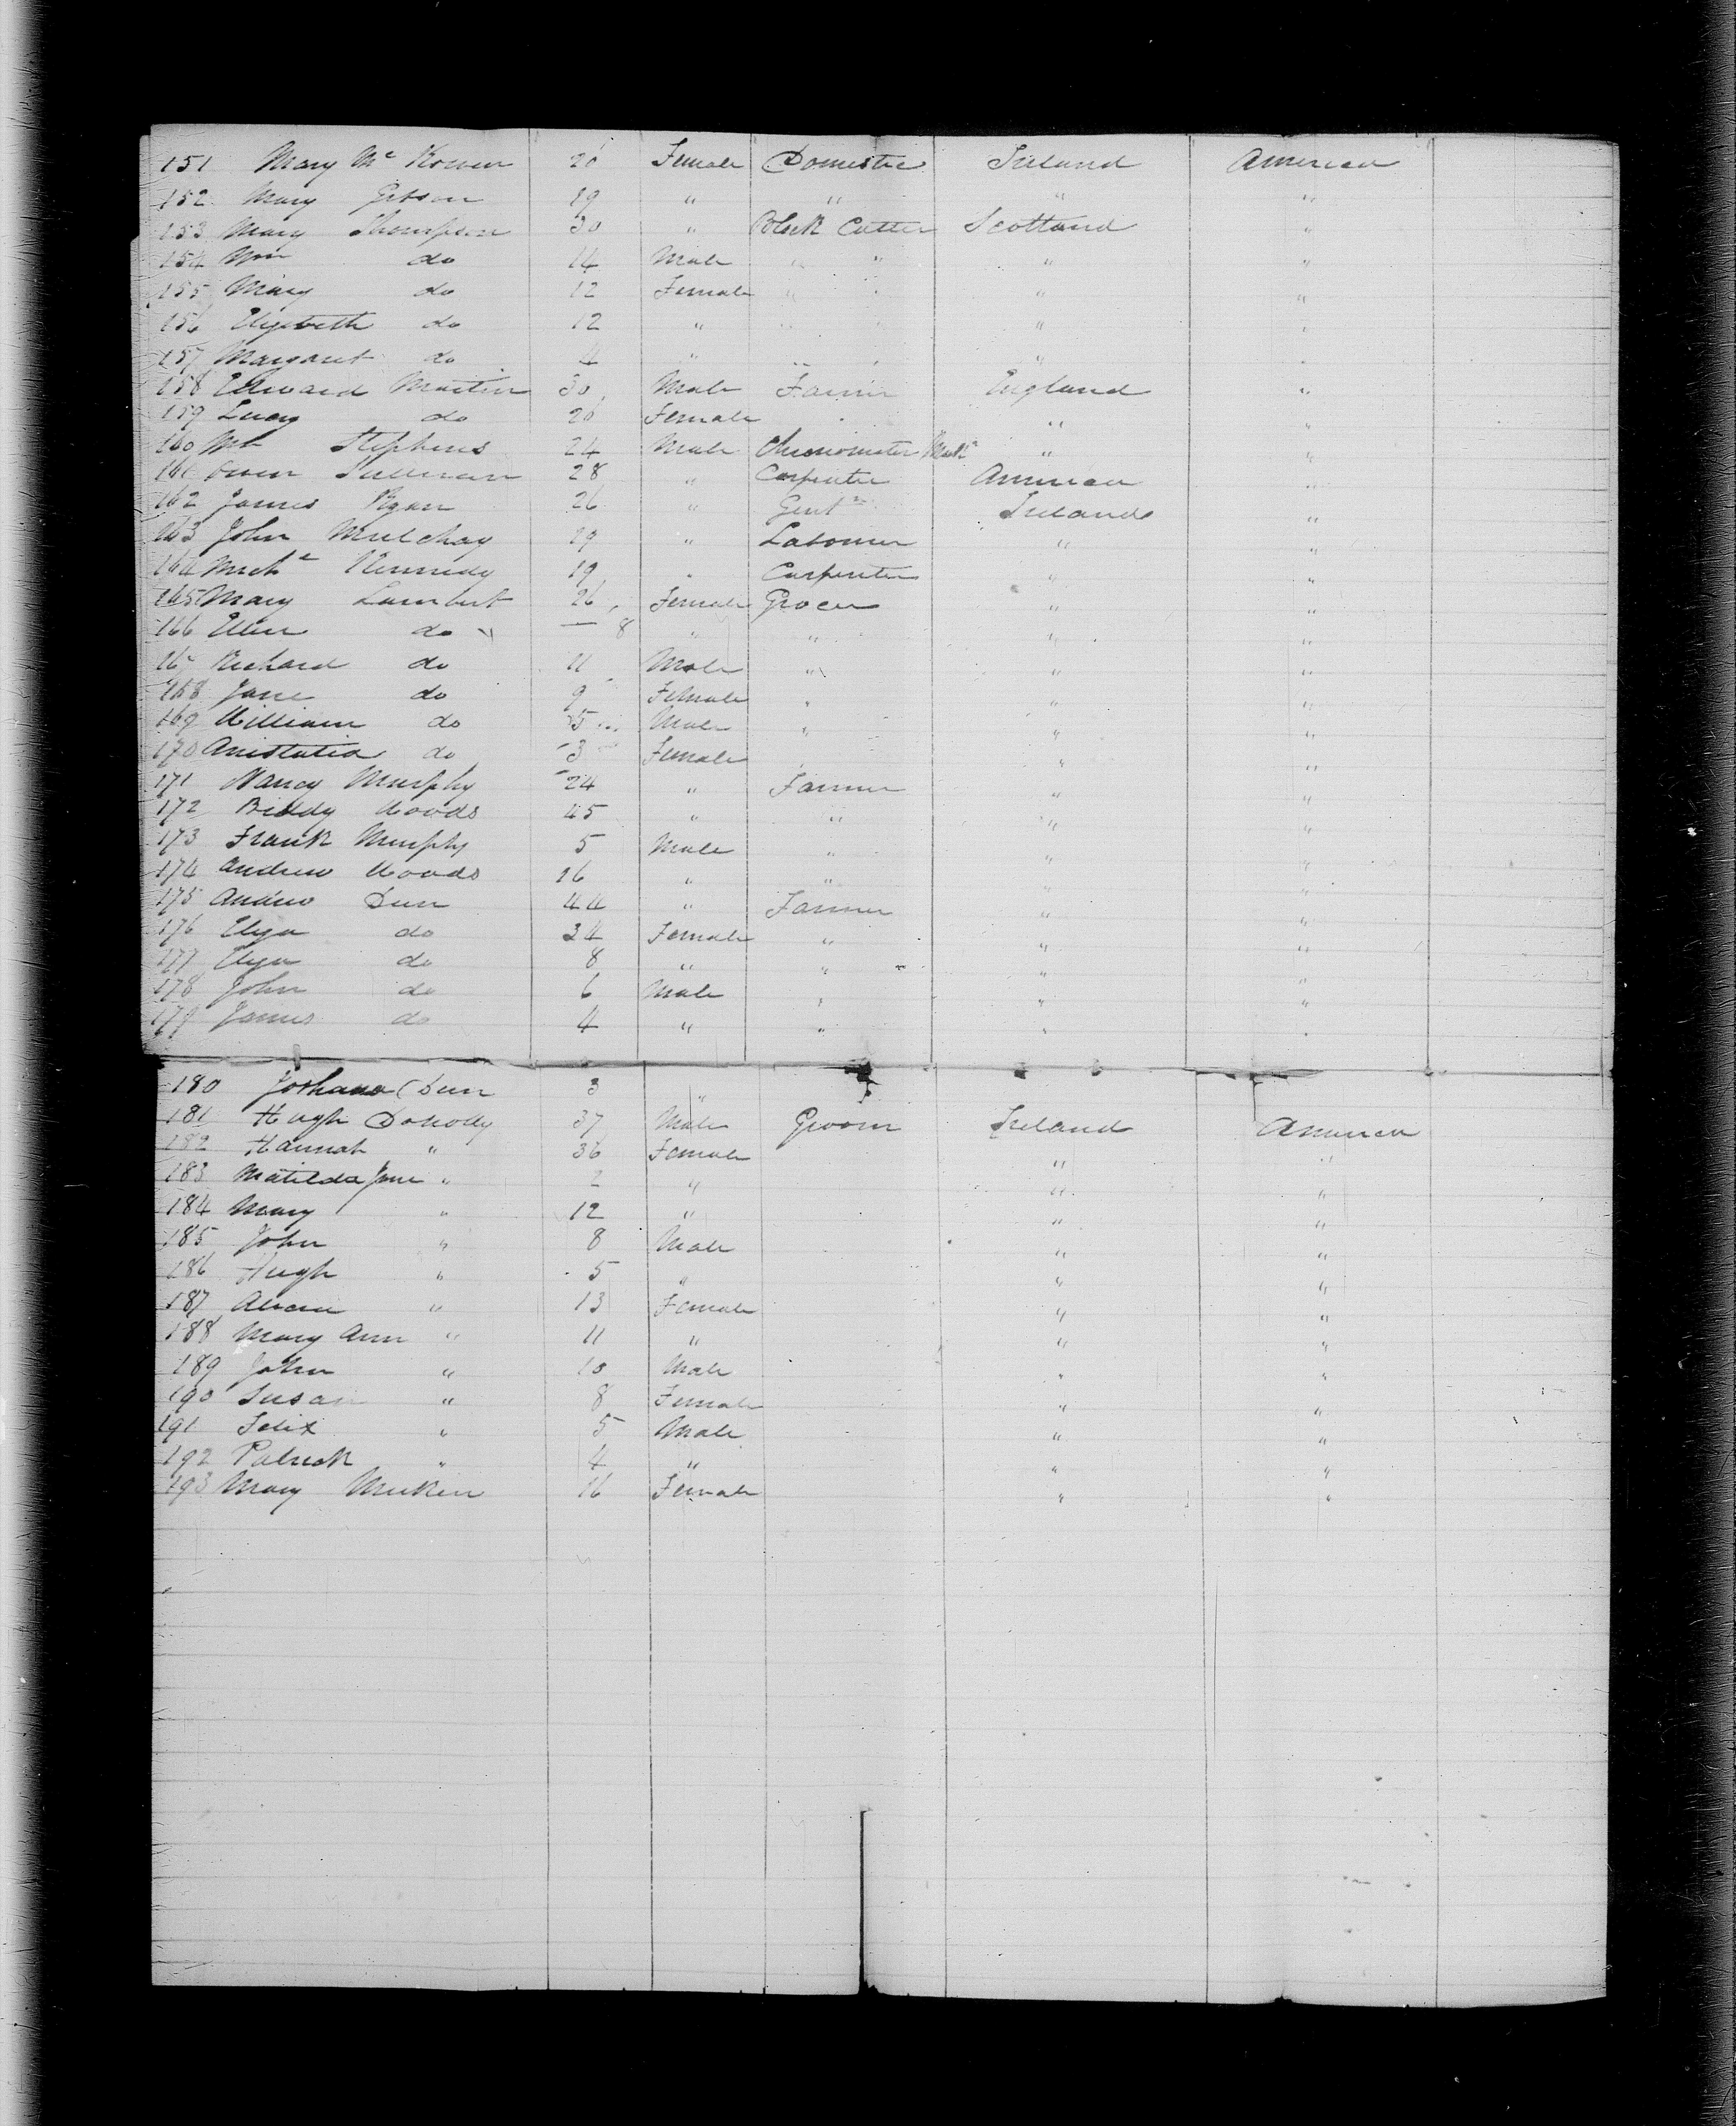 151 Mary Mc Kowen 20 Female Domestic Ireland America
152 Mary Gibson 19 " " " "
153 Mary Thompson 30 " Block Cutter Scotland "
154 Wm do 14 Male " " " "
155 Mary do 12 Female " " " "
156 Elizabeth do 12 " " " " "
157 Margaret do 4 " " " " "
158 Edward Martin 30 Male Farmer England "
159 Lucy do 20 Female " " "
160 Stephens 24 Male Chronometer Makr " "
161 Owen Sullivan 28 " Carpenter America "
162 James Ryan 26 " Gentn Ireland "
163 John Mulchay 29 " Labourer " "
164 Michl Kennedy 19 " Carpenter " "
165 Mary Lambert 26 Female Grocer " "
166 Ellen do 8 " " " "
167 Richard do 11 Male " " "
168 Jane do 9 Female " " "
169 William do 5 Male " " "
170 Anistatia do 3 Female " "
171 Nancy Murphy 24 " Farmer " "
172 Biddy Woods 45 " " " "
173 Frank Murphy 5 Male " " "
174 Andrew Woods 16 " " " "
175 Andrew Dun 44 " Farmer " "
176 Eliza do 34 Female " " "
177 Eliza do 8 " " " "
178 John do 6 Male " " "
179 James do 4 " " " "
180 Dun 3 "
181 Hugh 37 Male Groom Ireland America
182 Hannah " 36 Female " "
183 Matilda Jane " 2 " " "
184 Mary " 12 " " "
185 John " 8 Male " "
186 Hugh " 5 " " "
187 " 13 Female " "
188 Mary Ann " 11 " " "
189 John " 10 Male " "
190 Susan " 8 Female " "
191 Felix " 5 Male " "
192 Patrick " 4 " " "
193 Mary 16 Female " "